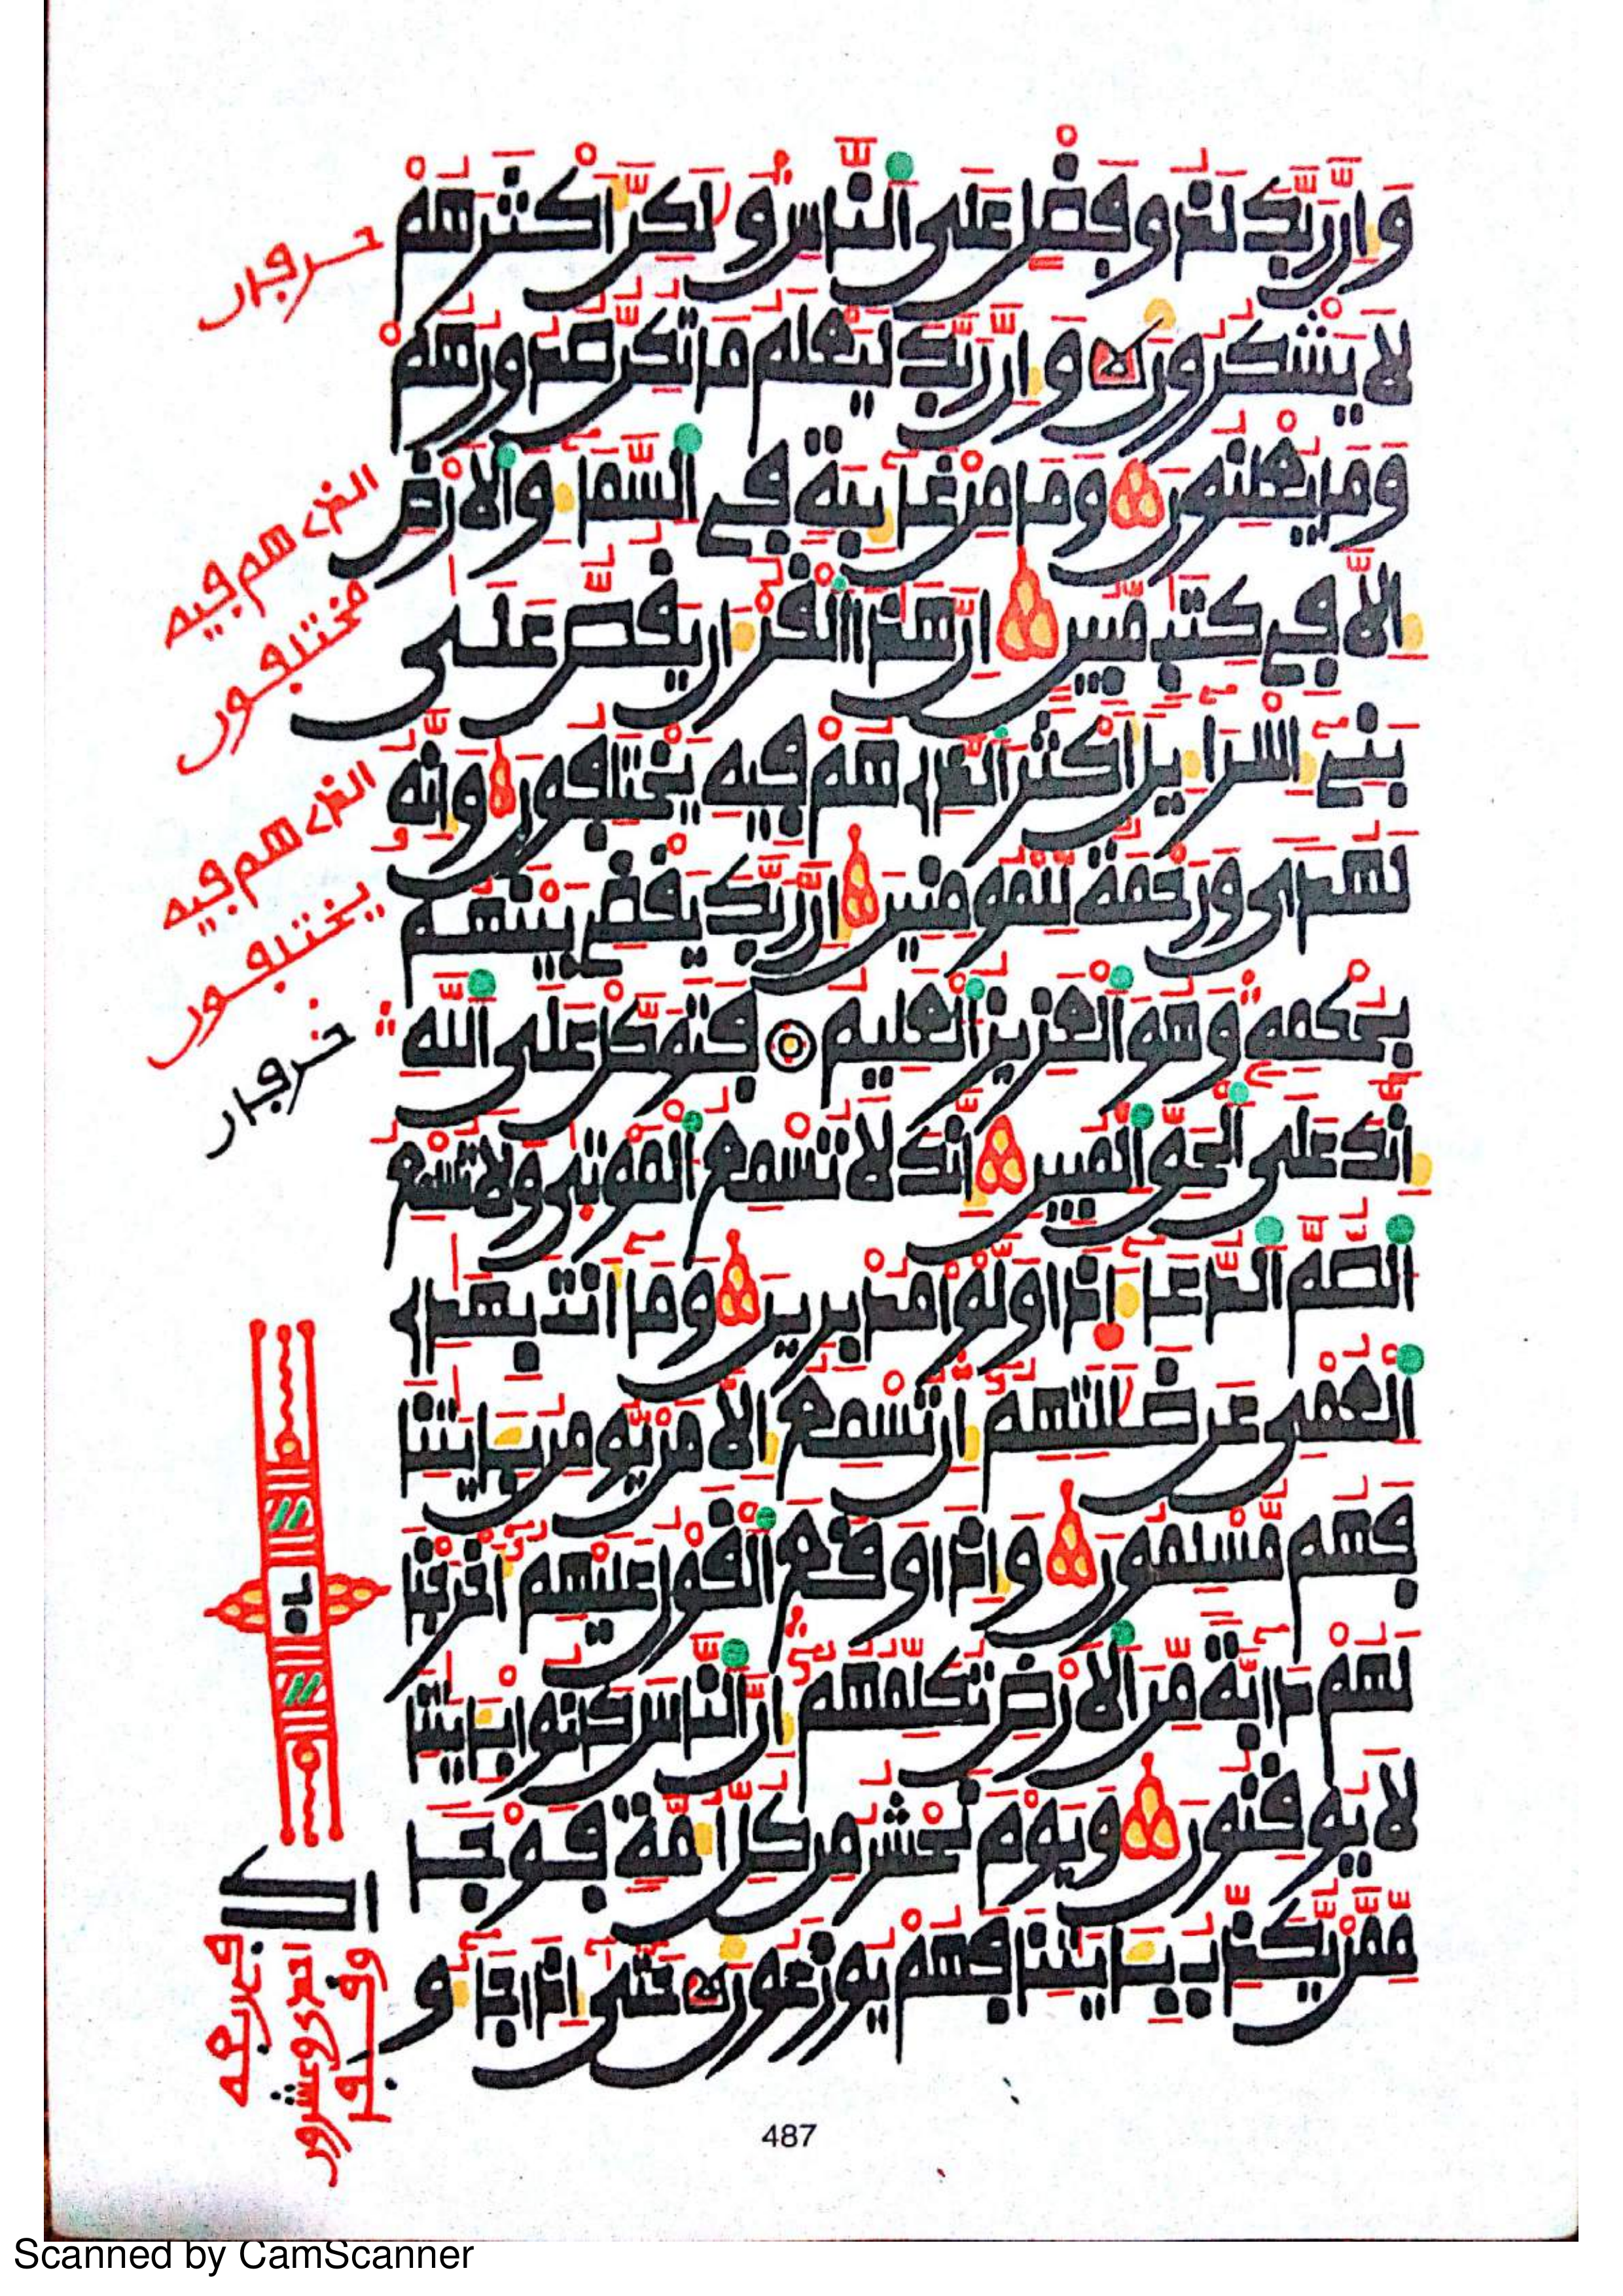 وَإِنَّ رَبَّكَ لَذُو فَضْلٍ عَلَى ٱلنَّاسِ وَلَٰكِنَّ أَكْثَرَهُمْ
لَا يَشْكُرُونَ وَإِنَّ رَبَّكَ لَيَعْلَمُ مَا تُكِنُّ صُدُورُهُمْ
وَمَا يُعْلِنُونَ وَمَا مِنْ غَآئِبَةٍ فِى ٱلسَّمَآءِ وَٱلْأَرْضِ
إِلَّا فِى كِتَٰبٍ مُّبِينٍ إِنَّ هَٰذَا ٱلْقُرْءَانَ يَقُصُّ عَلَىٰ
بَنِىٓ إِسْرَآءِيلَ أَكْثَرَ ٱلَّذِى هُمْ فِيهِ يَخْتَلِفُونَ وَإِنَّهُۥ
لَهُدًى وَرَحْمَةٌ لِّلْمُومِنِينَ إِنَّ رَبَّكَ يَقْضِى بَيْنَهُم
بِحُكْمِهِۦ وَهُوَ ٱلْعَزِيزُ ٱلْعَلِيمُ فَتَوَكَّلْ عَلَى ٱللَّهِ
إِنَّكَ عَلَى ٱلْحَقِّ ٱلْمُبِينِ إِنَّكَ لَا تُسْمِعُ ٱلْمَوْتَىٰ وَلَا تُسْمِعُ
ٱلصُّمَّ ٱلدُّعَآءَ إِذَا وَلَّوْا مُدْبِرِينَ وَمَآ أَنتَ بِهَٰدِى
ٱلْعُمْىِ عَن ضَلَٰلَتِهِمُۥٓ إِن تُسْمِعُ إِلَّا مَن يُومِنُ بِـَٔايَٰتِنَا
فَهُم مُّسْلِمُونَ وَإِذَا وَقَعَ ٱلْقَوْلُ عَلَيْهِمُۥٓ أَخْرَجْنَا
لَهُمْ دَآبَّةً مِّنَ ٱلْأَرْضِ تُكَلِّمُهُمُۥٓ إِنَّ ٱلنَّاسَ كَانُوا بِـَٔايَٰتِنَا
لَا يُوقِنُونَ وَيَوْمَ نَحْشُرُ مِن كُلِّ أُمَّةٍ فَوْجًا
مِّمَّن يُكَذِّبُ بِـَٔايَٰتِنَا فَهُمْ يُوزَعُونَ حَتَّىٰٓ إِذَا جَآءُو
الذى هم فيه
الذى هم فيه
487
Scanned by CamScanner